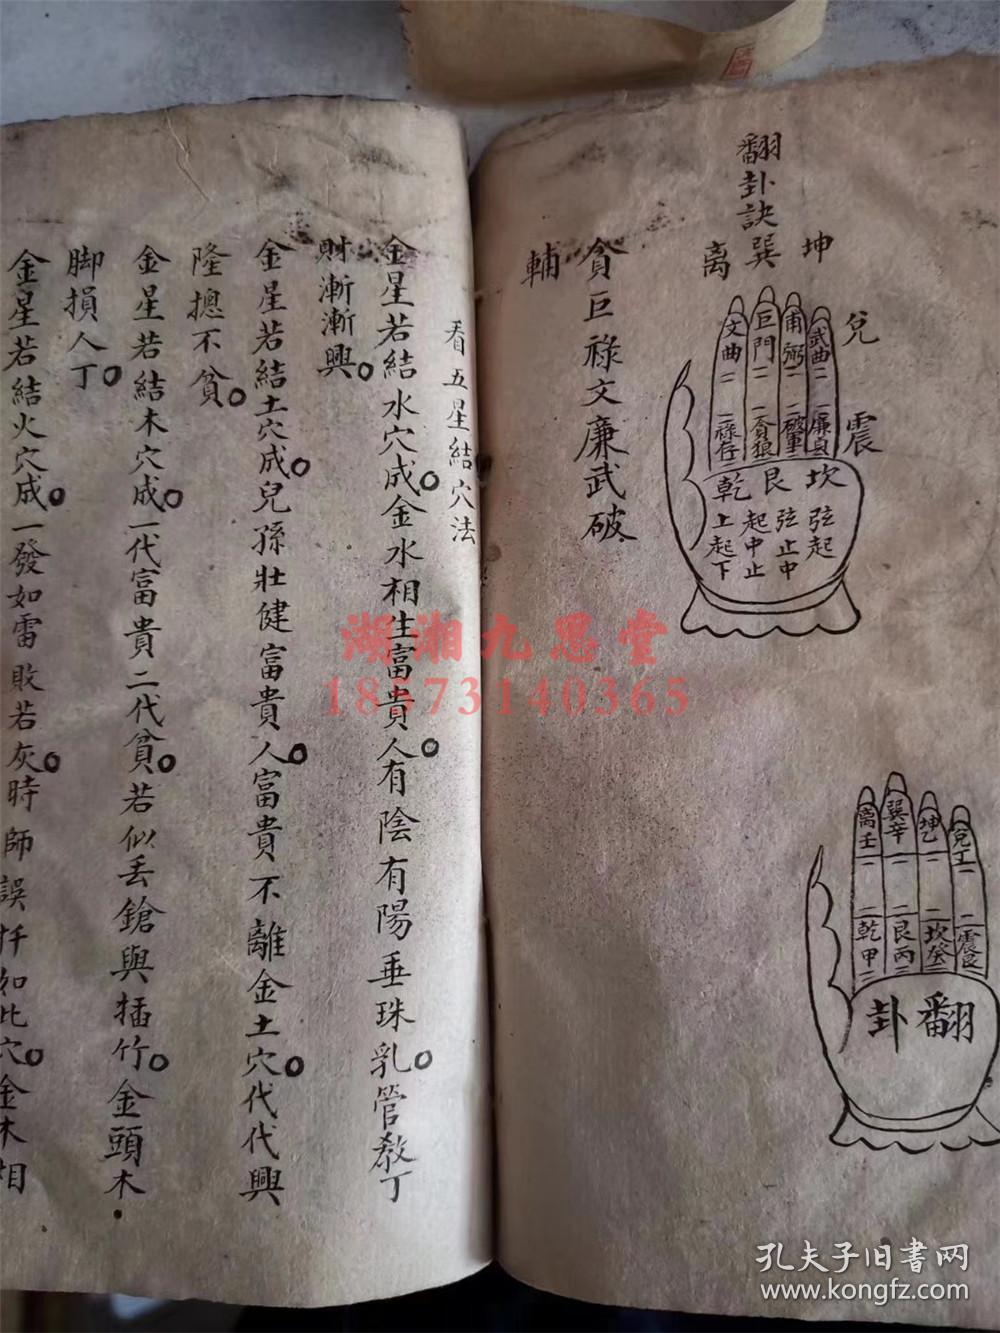 翻卦訣
坤
巽
离
兌
震
武曲
甫弼
巨門
文曲
廉貞
破軍
貪狼
祿存
坎
艮
乾
弦起
弦止中
起中止
上起下
貪巨祿文廉武破
輔
兌丁
坤乙
巽辛
離壬
坎癸
艮丙
乾甲
翻卦
看五星結穴法
金星若結水穴成金水相生富貴人有陰有陽垂珠乳管教丁
財漸漸興
金星若結土穴成兒孫壯健富貴人富貴不離金土穴代代興
隆摠不貧
金星若結木穴成一代富貴二代貧若似丢鎗與插竹金頭木
脚損人丁
金星若結火穴成一發如雷敗若灰時師誤扦如此穴金木相
湖湘九思堂
18573140365
孔夫子旧書网
www.kongfz.com